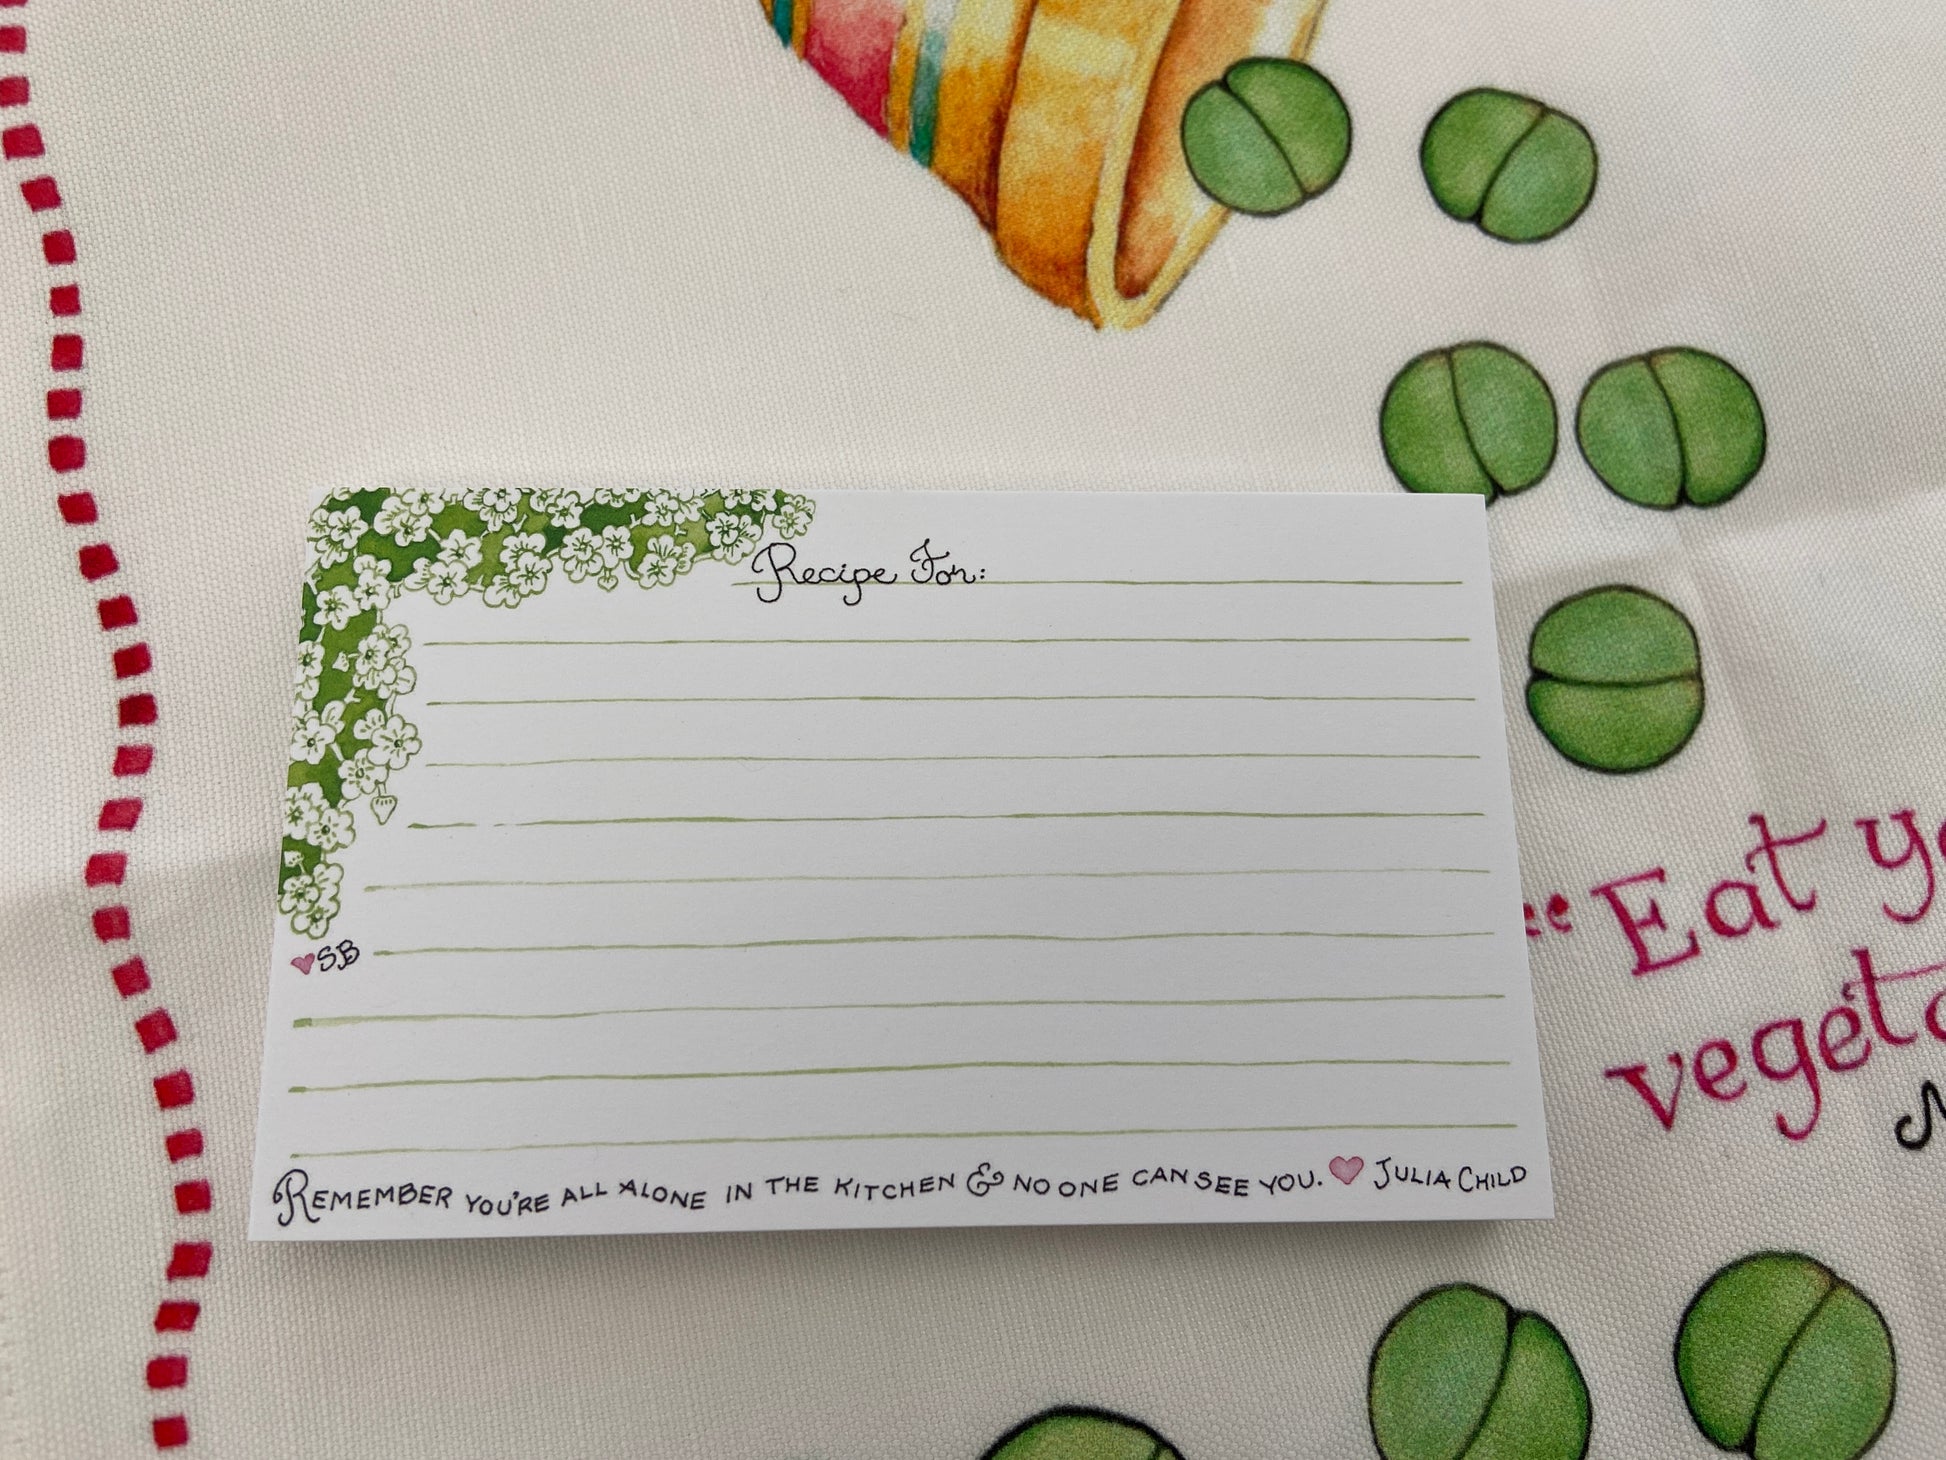 Recipe For:
SB
REMEMBER YOU'RE ALL ALONE IN THE KITCHEN & NO ONE CAN SEE YOU. JULIA CHILD
"Eat